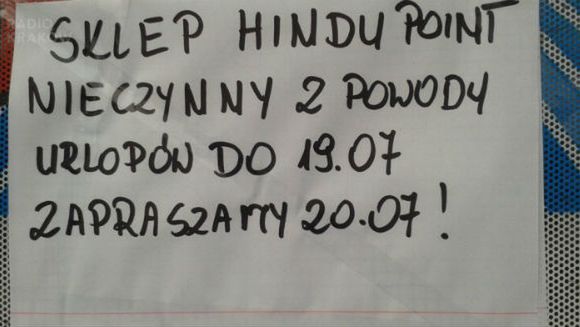 RADIO
KRAKÓW
SKLEP HINDU POINT
NIECZYNNY Z POWODY
URLOPÓW DO 19.07
ZAPRASZAMY 20.07!